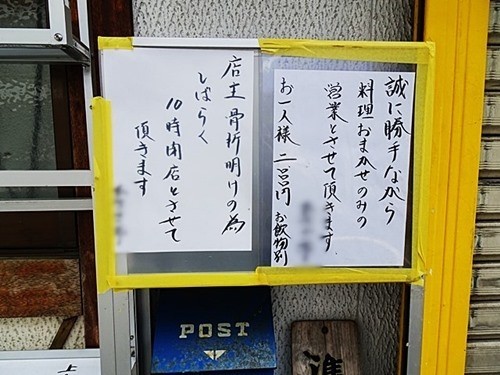 誠に勝手ながら
料理おまかせのみの
営業とさせて頂きます
お一人様 二、〇〇〇円 お飲物別
店主 骨折明けの為
しばらく
10時閉店とさせて
頂きます
POST
準